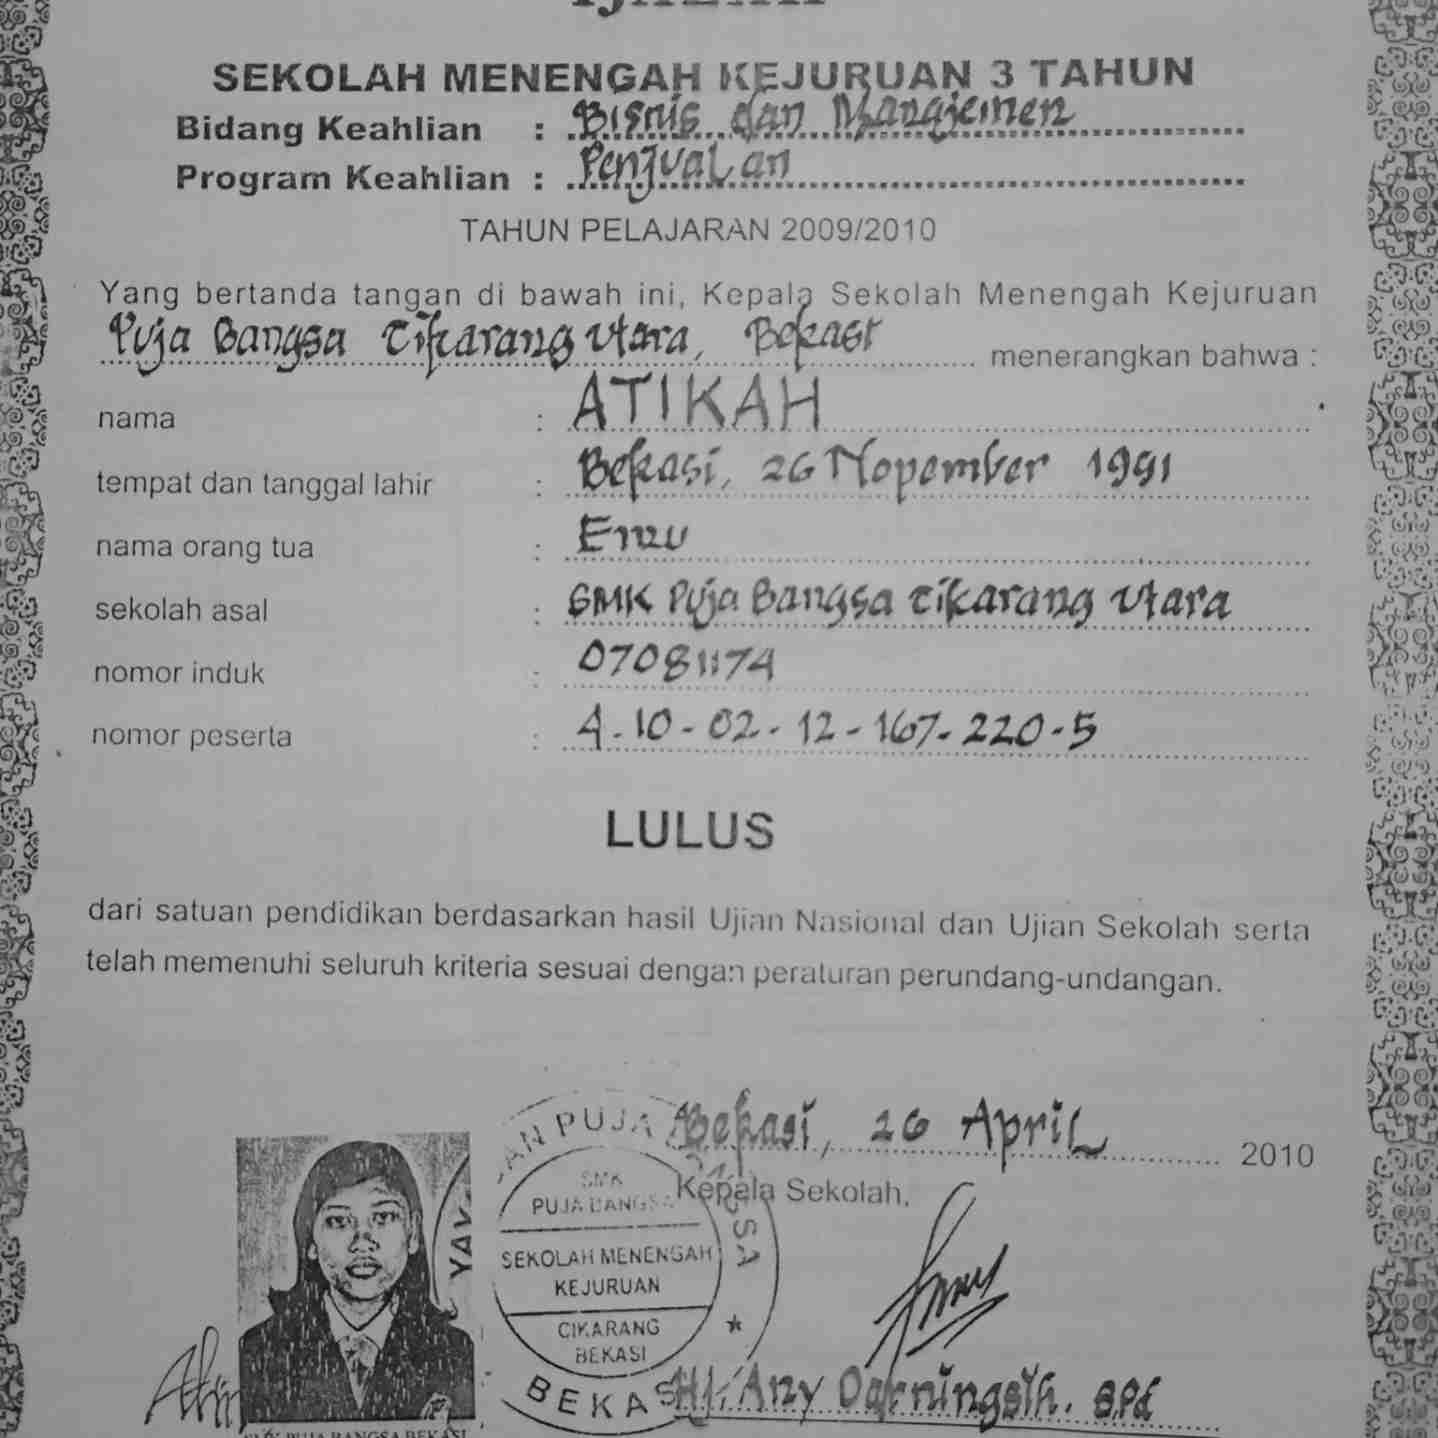 IJAZAH
SEKOLAH MENENGAH KEJURUAN 3 TAHUN
Bidang Keahlian : Bisnis dan Manajemen
Program Keahlian : Penjualan
TAHUN PELAJARAN 2009/2010
Yang bertanda tangan di bawah ini, Kepala Sekolah Menengah Kejuruan
Puja Bangsa Cikarang Utara, Bekasi menerangkan bahwa :
nama : ATIKAH
tempat dan tanggal lahir : Bekasi, 26 Nopember 1991
nama orang tua : Emu
sekolah asal : SMK Puja Bangsa Cikarang Utara
nomor induk : 07081174
nomor peserta : 4-10-02-12-167-220-5
LULUS
dari satuan pendidikan berdasarkan hasil Ujian Nasional dan Ujian Sekolah serta
telah memenuhi seluruh kriteria sesuai dengan peraturan perundang-undangan.
Bekasi, 26 April 2010
Kepala Sekolah,
PUJA BANGSA
SMK
PUJA BANGSA
SEKOLAH MENENGAH
KEJURUAN
CIKARANG
BEKASI
BEKASI
YAY
Hj. Any Darningsih. S.Pd
SMK PUJA BANGSA BEKASI